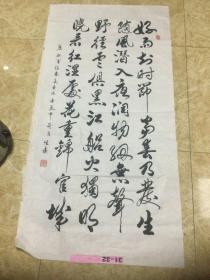 好雨知时節當春乃發生
隨風潛入夜潤物細無聲
野徑雲俱黑江船火獨明
曉看红濕處花重錦官城
31-32